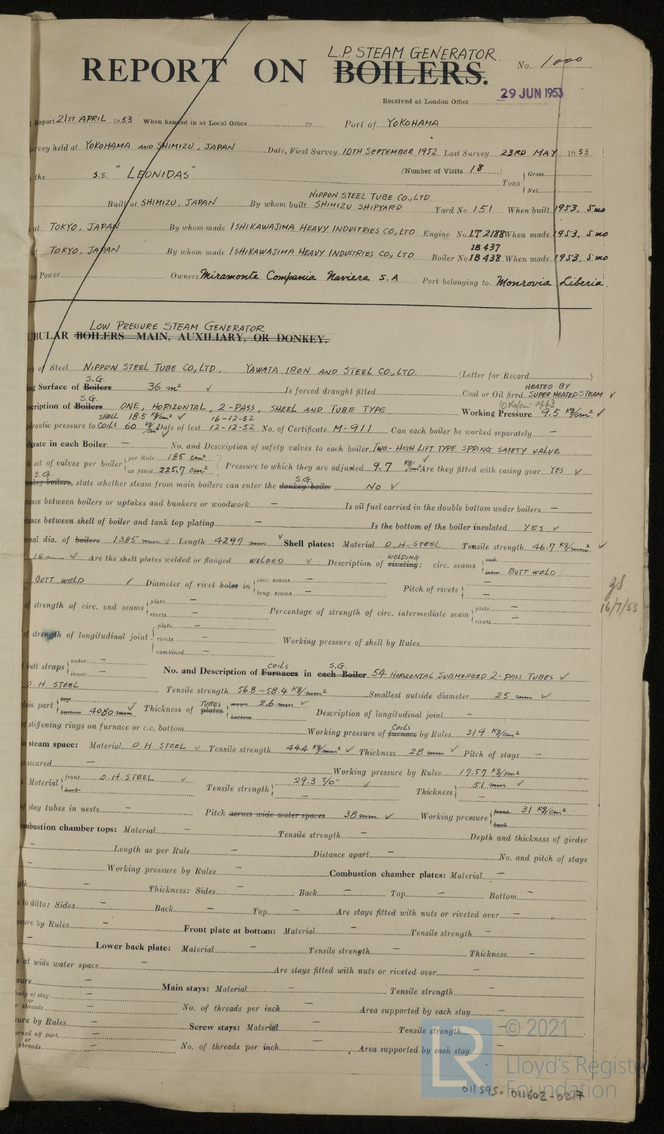 L.P. STEAM GENERATOR
REPORT ON BOILERS. No. 1000
Received at London Office 29 JUN 1953
Report 21ST APRIL 1953 When handed in at Local Office 19 Port of YOKOHAMA
Survey held at YOKOHAMA AND SHIMIZU, JAPAN Date, First Survey 10TH SEPTEMBER 1952 Last Survey 23RD MAY 1953
the S.S. "LEONIDAS" (Number of Visits 18) Tons Gross Net
Built at SHIMIZU, JAPAN By whom built NIPPON STEEL TUBE CO., LTD. SHIMIZU SHIPYARD Yard No 151 When built 1953. 5 mo
at TOKYO, JAPAN By whom made ISHIKAWAJIMA HEAVY INDUSTRIES CO., LTD Engine No. LT 2188 When made 1953. 5 mo
at TOKYO, JAPAN By whom made ISHIKAWAJIMA HEAVY INDUSTRIES CO., LTD Boiler No. 1B 437 1B 438 When made 1953. 5 mo
Power Owners Miramonte Compania Naviera S.A Port belonging to Monrovia Liberia.
LOW PRESSURE STEAM GENERATOR
UBULAR BOILERS MAIN, AUXILIARY, OR DONKEY.
of Steel NIPPON STEEL TUBE CO., LTD., YAWATA IRON AND STEEL CO., LTD. (Letter for Record)
ing Surface of Boilers S.G. 36 m² ✓ Is forced draught fitted Coal or Oil fired HEATED BY SUPER HEATED STEAM ✓
scription of Boilers S.G. ONE, HORIZONTAL, 2-PASS, SHELL AND TUBE TYPE Working Pressure 9.5 kg/cm² ✓
draulic pressure to SHELL 18.5 kg/cm² ✓ COILS 60 kg/cm² Date of test 16-12-52 12-12-52 No. of Certificate M-911 Can each boiler be worked separately —
grate in each Boiler — No. and Description of safety valves to each boiler TWO-HIGH LIFT TYPE SPRING SAFETY VALVE
set of valves per boiler per Rule 185 cm² as fitted 225.7 cm² Pressure to which they are adjusted 9.7 kg/cm² Are they fitted with easing gear YES ✓
S.G. boilers, state whether steam from main boilers can enter the donkey boiler S.G. NO ✓
nce between boilers or uptakes and bunkers or woodwork — Is oil fuel carried in the double bottom under boilers —
tance between shell of boiler and tank top plating — Is the bottom of the boiler insulated YES ✓
nal dia. of boilers 1385 mm ✓ Length 4297 mm ✓ Shell plates: Material O.H. STEEL Tensile strength 46.7 kg/mm² ✓
18 mm ✓ Are the shell plates welded or flanged WELDED ✓ Description of riveting: WELDING circ. seams end inter BUTT WELD
BUTT WELD ✓ Diameter of rivet holes in circ. seams — long. seams — Pitch of rivets —
of strength of circ. end seams plate — rivets — Percentage of strength of circ. intermediate seam plate — rivets —
of strength of longitudinal joint plate — rivets — combined — Working pressure of shell by Rules
butt straps outer — inner — No. and Description of Furnaces COILS in each Boiler S.G. 54 HORIZONTAL SUBMERGED 2-PASS TUBES ✓
O.H. STEEL Tensile strength 56.8~58.4 kg/mm² Smallest outside diameter 25 mm ✓
in part top bottom 4080 mm ✓ Thickness of plates TUBES crown 2.6 mm ✓ bottom Description of longitudinal joint —
of stiffening rings on furnace or c.c. bottom — Working pressure of furnace COILS by Rules 319 kg/cm²
steam space: Material O.H. STEEL ✓ Tensile strength 44.4 kg/mm² ✓ Thickness 28 mm ✓ Pitch of stays —
secured — Working pressure by Rules 17.57 kg/cm²
: Material front O.H. STEEL ✓ back Tensile strength 29.3 T/□" ✓ Thickness 51 mm ✓
of stay tubes in nests — Pitch across wide water spaces 38 mm ✓ Working pressure front 31 kg/cm² back
ombustion chamber tops: Material — Tensile strength — Depth and thickness of girder
— Length as per Rule — Distance apart — No. and pitch of stays
Working pressure by Rules — Combustion chamber plates: Material —
— Thickness: Sides — Back — Top — Bottom —
to ditto: Sides — Back — Top — Are stays fitted with nuts or riveted over —
sure by Rules — Front plate at bottom: Material — Tensile strength —
Lower back plate: Material — Tensile strength — Thickness —
at wide water space — Are stays fitted with nuts or riveted over —
sure — Main stays: Material — Tensile strength —
body of stay or threads — No. of threads per inch — Area supported by each stay —
ure by Rules — Screw stays: Material — Tensile strength —
turned off part or threads — No. of threads per inch — Area supported by each stay —
16/7/53
LR © 2021
Lloyd's Register
Foundation
011595-011602-0217